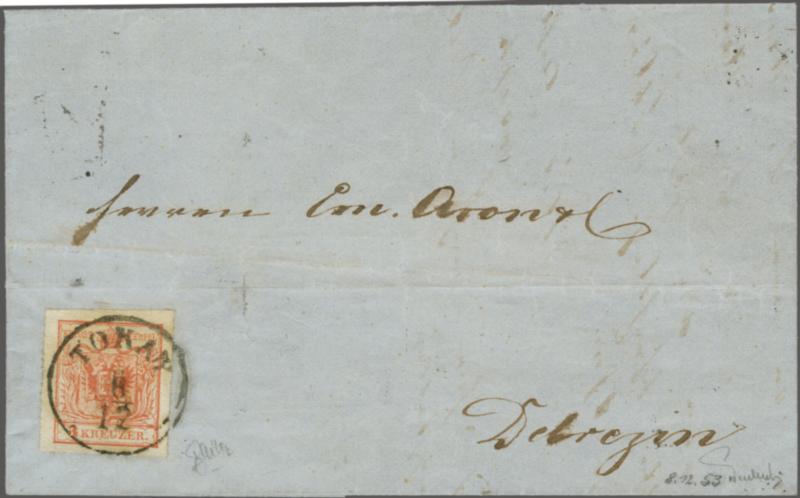 Herren Em. Aronal
TOKAY
8
12
3 KREUZER.
Debrezin
8.12.53